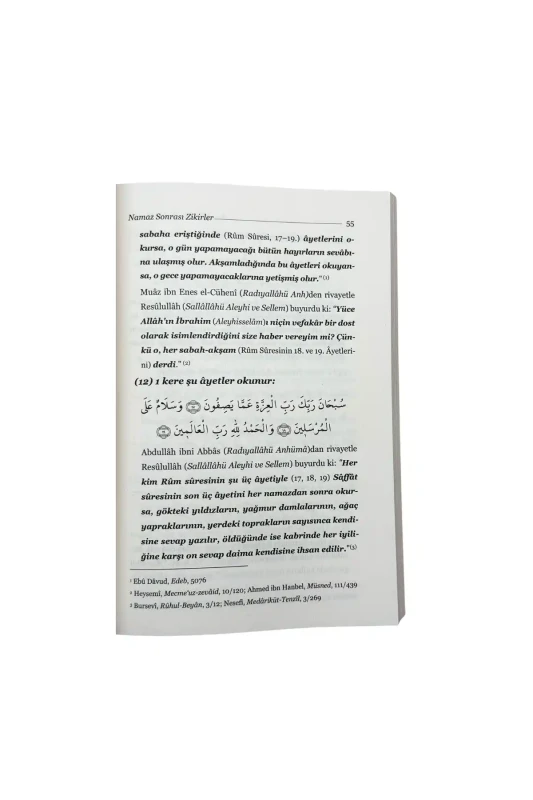 Namaz Sonrası Zikirler 55
sabaha eriştiğinde (Rûm Sûresi, 17–19.) âyetlerini o-
kursa, o gün yapamayacağı bütün hayırların sevâbı-
na ulaşmış olur. Akşamladığında bu âyetleri okuyan-
sa, o gece yapamayacaklarına yetişmiş olur." (1)
Muâz ibn Enes el-Cühenî (Radıyallâhü Anh)den rivayetle
Resûlullâh (Sallâllâhü Aleyhi ve Sellem) buyurdu ki: "Yüce
Allâh'ın İbrahim (Aleyhisselâm)ı niçin vefakâr bir dost
olarak isimlendirdiğini size haber vereyim mi? Çün-
kü o, her sabah-akşam (Rûm Sûresinin 18. ve 19. Âyetleri-
ni) derdi." (2)
(12) 1 kere şu âyetler okunur:
سُبْحَانَ رَبِّكَ رَبِّ الْعِزَّةِ عَمَّا يَصِفُونَ ﴿١٨٠﴾ وَسَلَامٌ عَلَى
الْمُرْسَلِينَ ﴿١٨١﴾ وَالْحَمْدُ لِلّٰهِ رَبِّ الْعَالَمِينَ ﴿١٨٢﴾
Abdullâh ibni Abbâs (Radıyallâhü Anhümâ)dan rivayetle
Resûlullâh (Sallâllâhü Aleyhi ve Sellem) buyurdu ki: "Her
kim Rûm sûresinin şu üç âyetiyle (17, 18, 19) Sâffât
sûresinin son üç âyetini her namazdan sonra okur-
sa, gökteki yıldızların, yağmur damlalarının, ağaç
yapraklarının, yerdeki toprakların sayısınca kendi-
sine sevap yazılır, öldüğünde ise kabrinde her iyili-
ğine karşı on sevap daima kendisine ihsan edilir."(3)
1 Ebû Dâvud, Edeb, 5076
2 Heysemî, Mecme'uz-zevâid, 10/120; Ahmed ibn Hanbel, Müsned, 111/439
3 Bursevî, Rûhul-Beyân, 3/12; Nesefî, Medârikût-Tenzîl, 3/269